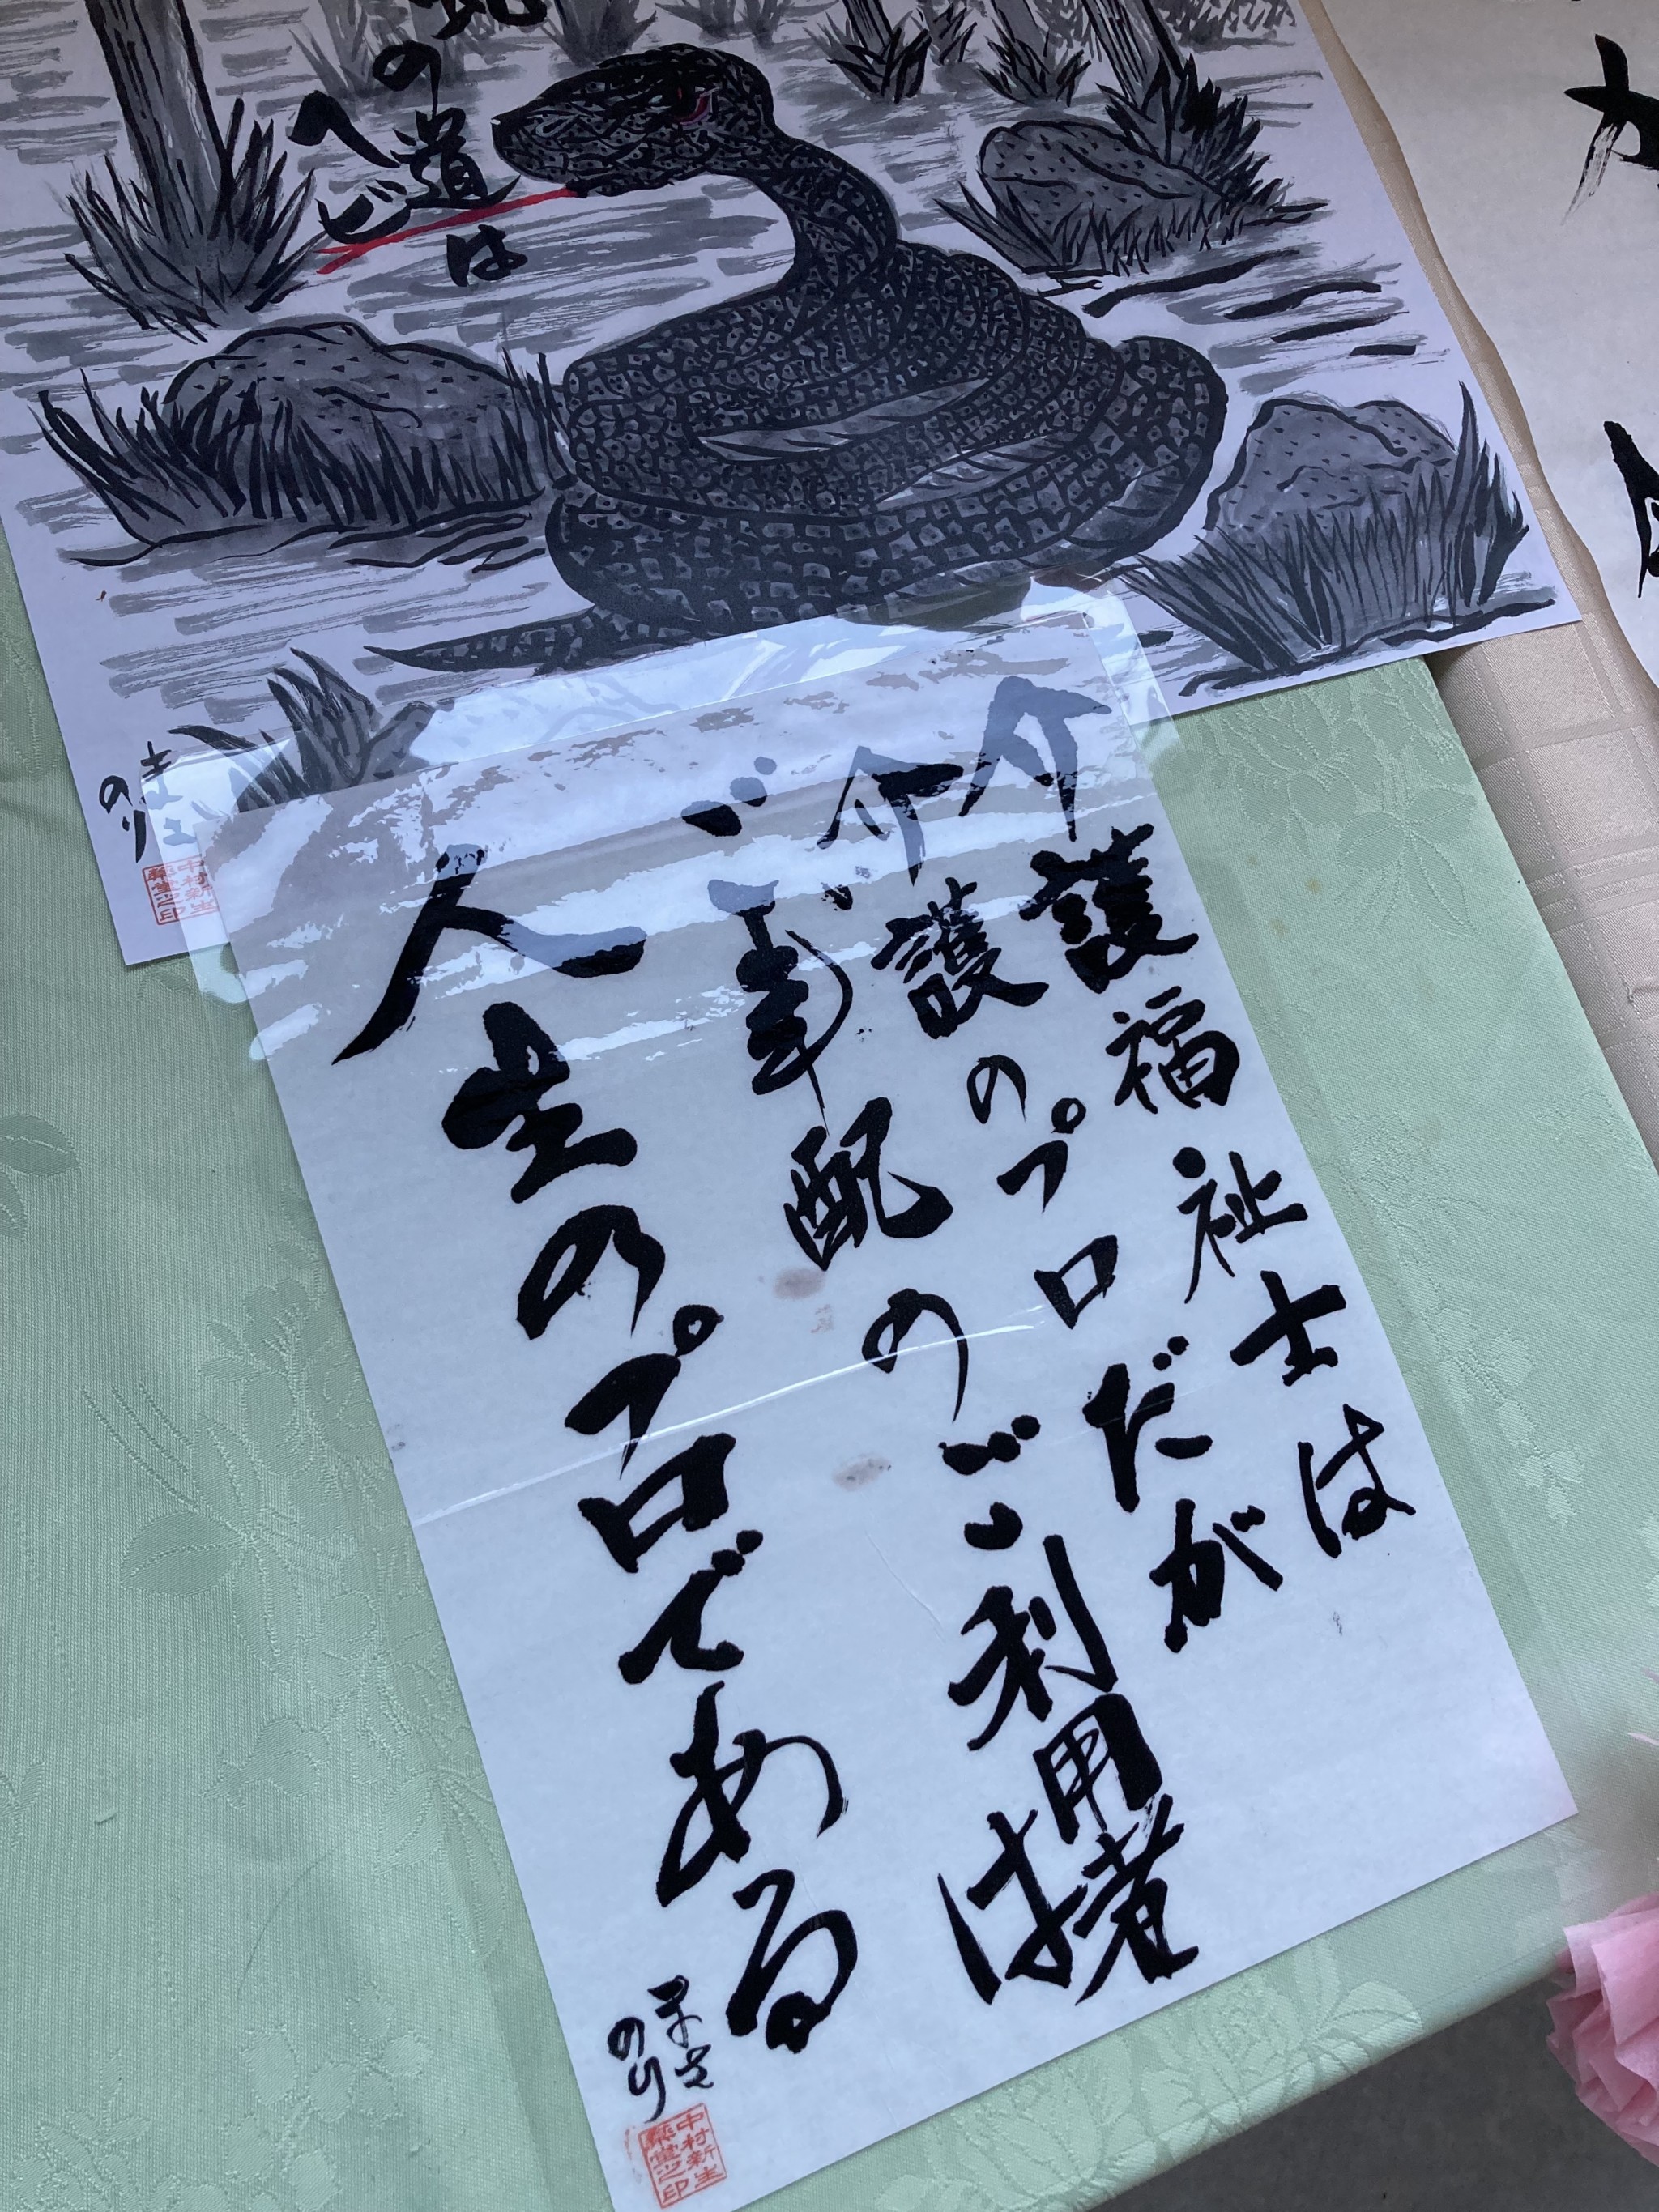 の道は
へビ
まさ
のり
中村新生
薬堂之印
介護福祉士は
介護のプロだが
ご年配のご利用者は
人生のプロである
まさ
のり
中村新生
薬堂之印